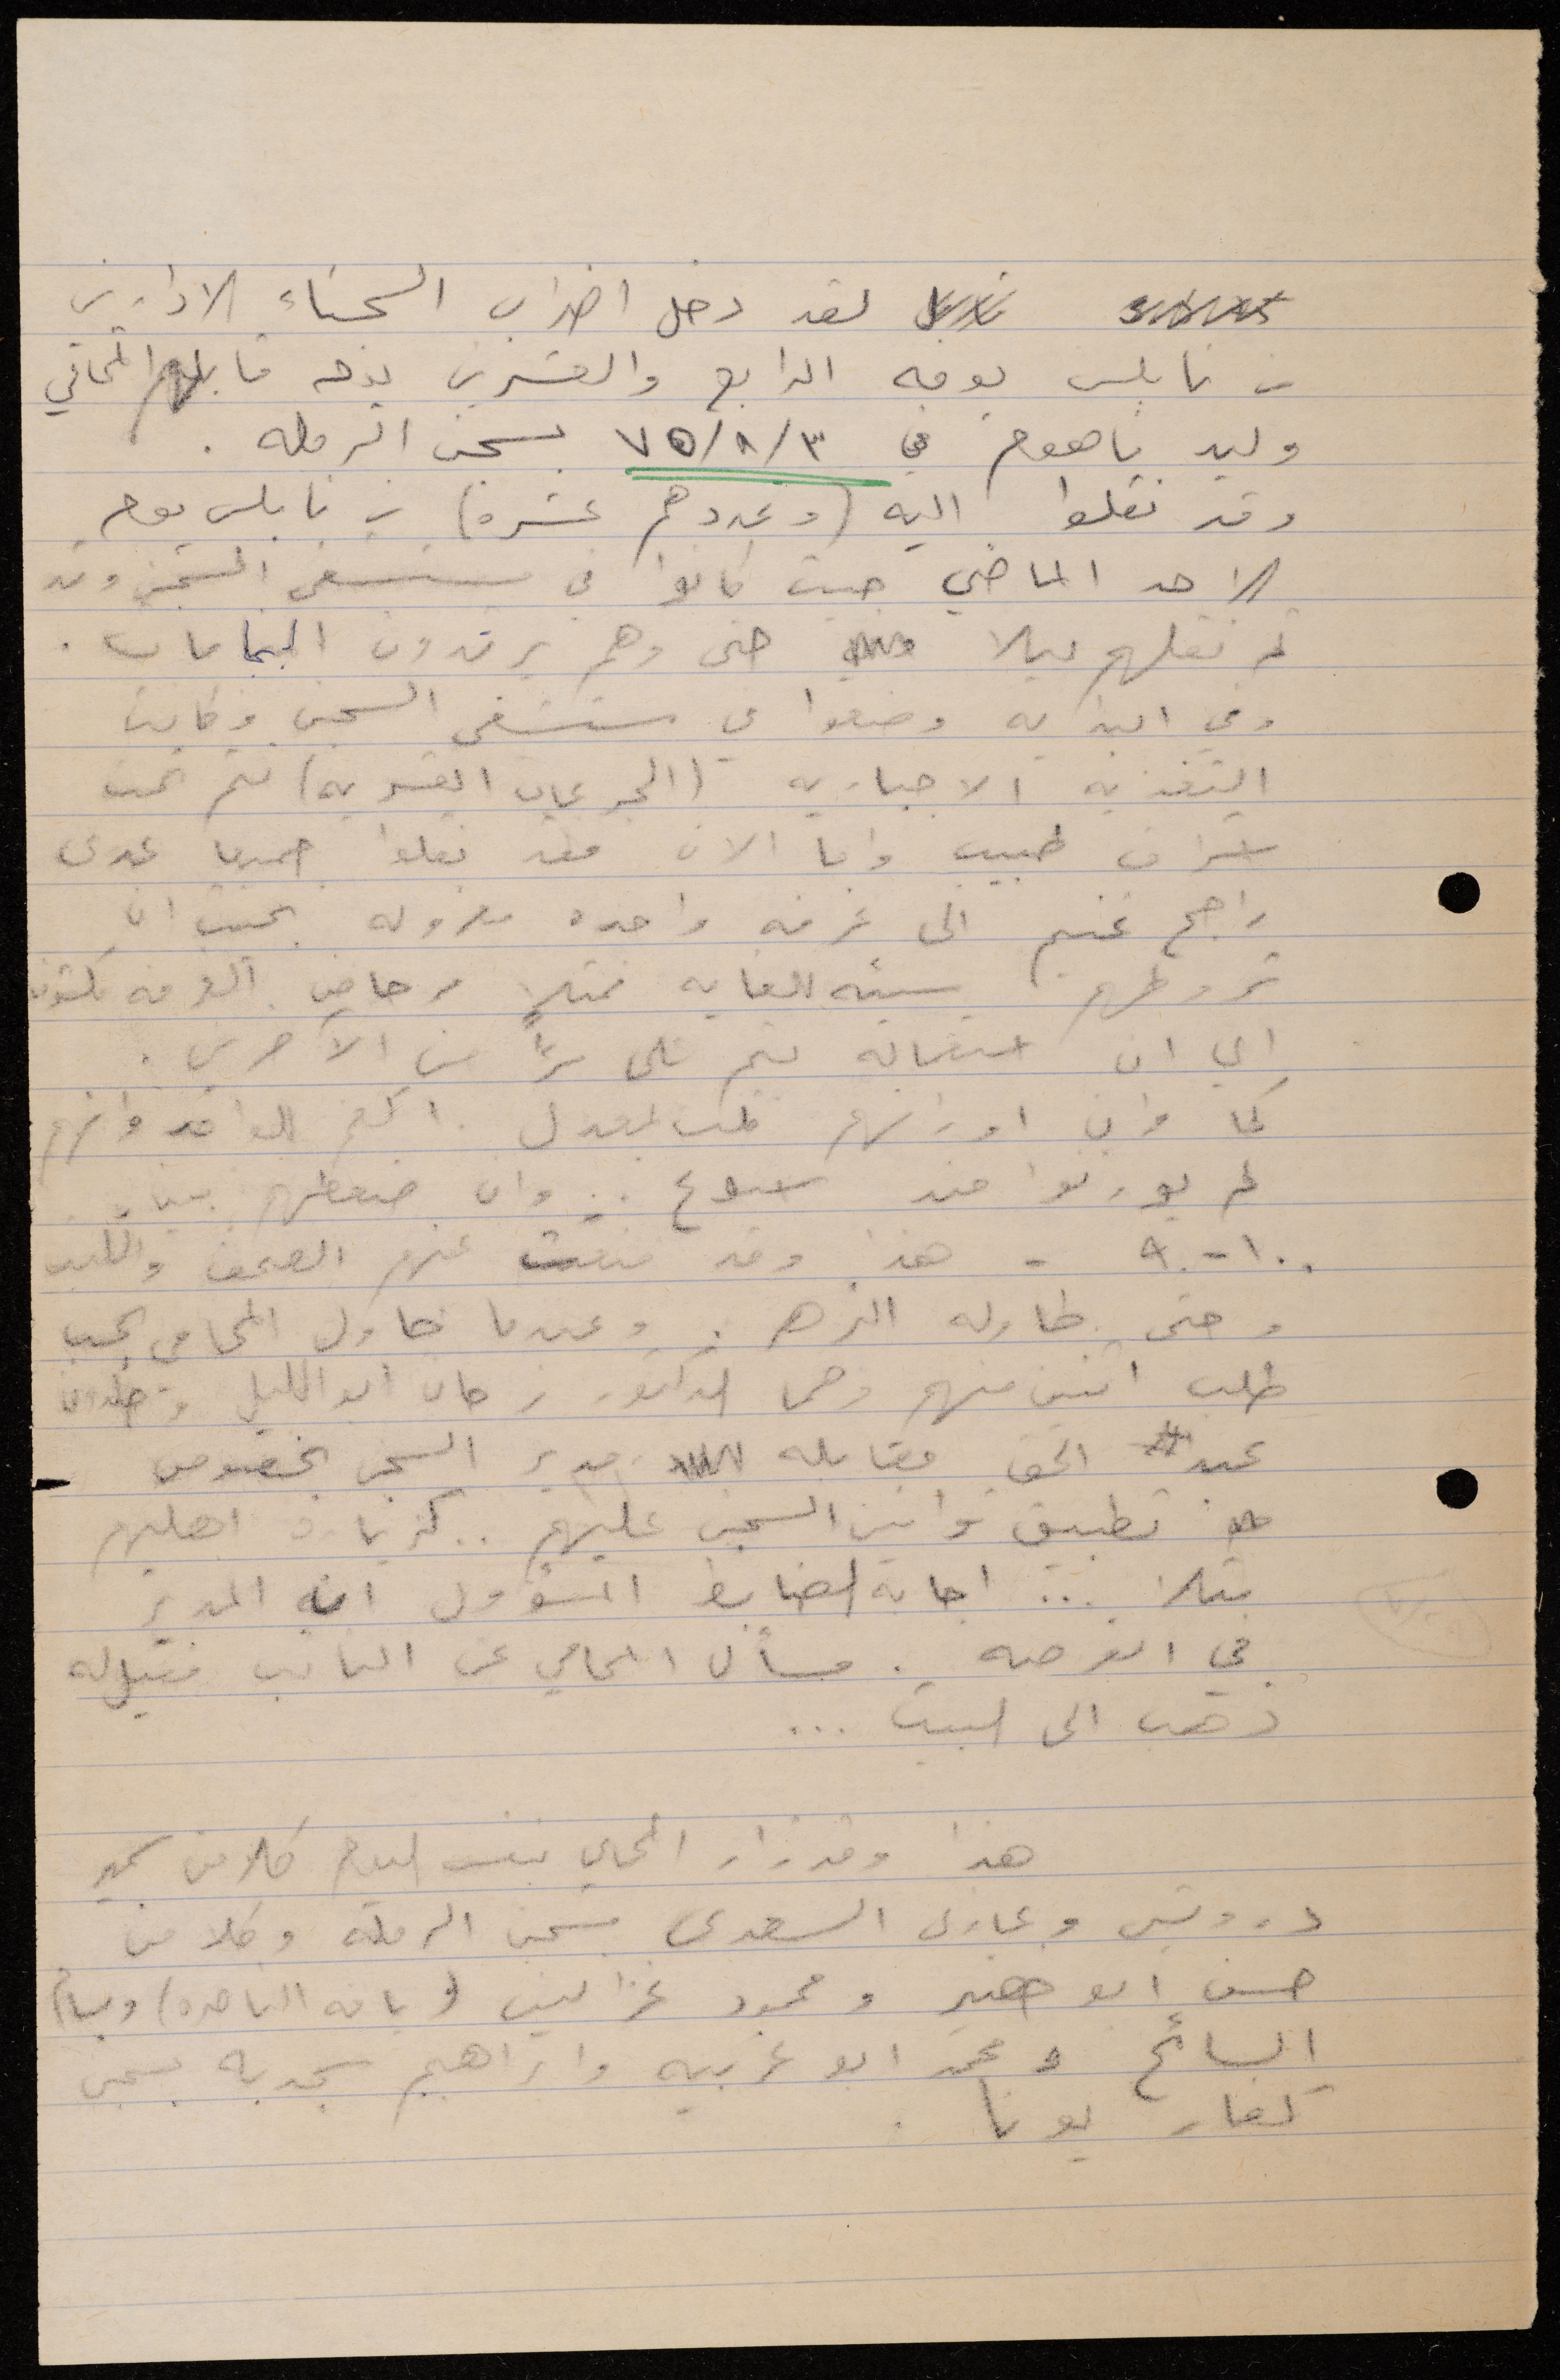 لقد دخل اضراب السجناء الاداريين
من نابلس يومه الرابع والعشرين يوم قابلهم المحامي
وليد فاهوم في ٧٥/٨/٣ بسجن الرمله .
وقد نقلوا اليه (وعددهم عشرة) من نابلس يوم
الاحد الماضي حيث كانوا في مستشفى السجن وقد
تم نقلهم ليلا حتى وهم يرتدون البيجامات .
وفي البدايه وضعوا في مستشفى السجن وكانت
التغذيه الاجباريه (الجرعات القسريه) تتم تحت
اشراف طبيب واما الان فقد نقلوا جميعا عدى
راجح غنيم الى غرفه واحده معزوله بحيث ان
شروطهم سيئه للغايه فمثلا مرحاض الغرفه مكشوف
اي ان استعماله يتم على مرأ من الآخرين .
كما وان اوزانهم قلت بمعدل ١ كغم للواحد وانهم
لم يوزنوا منذ اسبوع .. وان ضغطهم بين
٩٠-١٠٠ - هذا وقد منعت عنهم الصحف والكتب
وحتى طاوله الزهر . وعندما حاول المحامي بحسب
طلب اثنين منهم وهما الدكتور فرحان ابو الليل وخلدون
عبد الحق مقابله مدير السجن بخصوص
تطبيق قوانين السجن عليهم .. كزيارة اهليهم
مثلا ... اجابه الضابط المسؤول انه المدير
في الفرصه . فسأل المحامي عن النائب فقيل له
ذهب الى البيت ...
هذا وقد زار المحامي بنفس اليوم كلا من سمير
درويش وغازي السعدي بسجن الرمله وكلا من
حسن ابو خضير ومحمود غزالين (يافة الناصره) وبسام
السائح ومحمد ابو غربيه وابراهيم سجديه بسجن
كفار يونا .